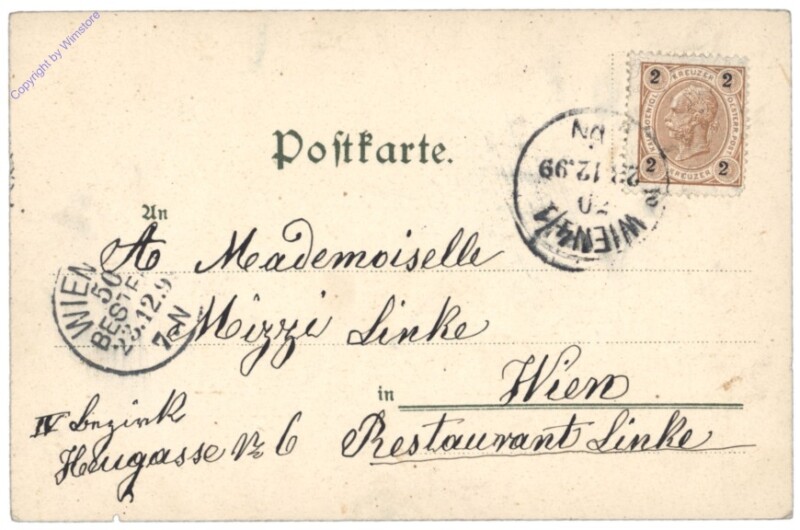 Copyright by Wimstore
2 KREUZER 2
OESTERR. POST
2 KREUZER 2
Postkarte.
WIEN 4/1
70
23.12.99
ÙN
An
A Mademoiselle
WIEN
50
BESTE
23.12.9
7-N
Mizzi Linke
in Wien
IV Bezirk
Heugasse No 6 Restaurant Linke